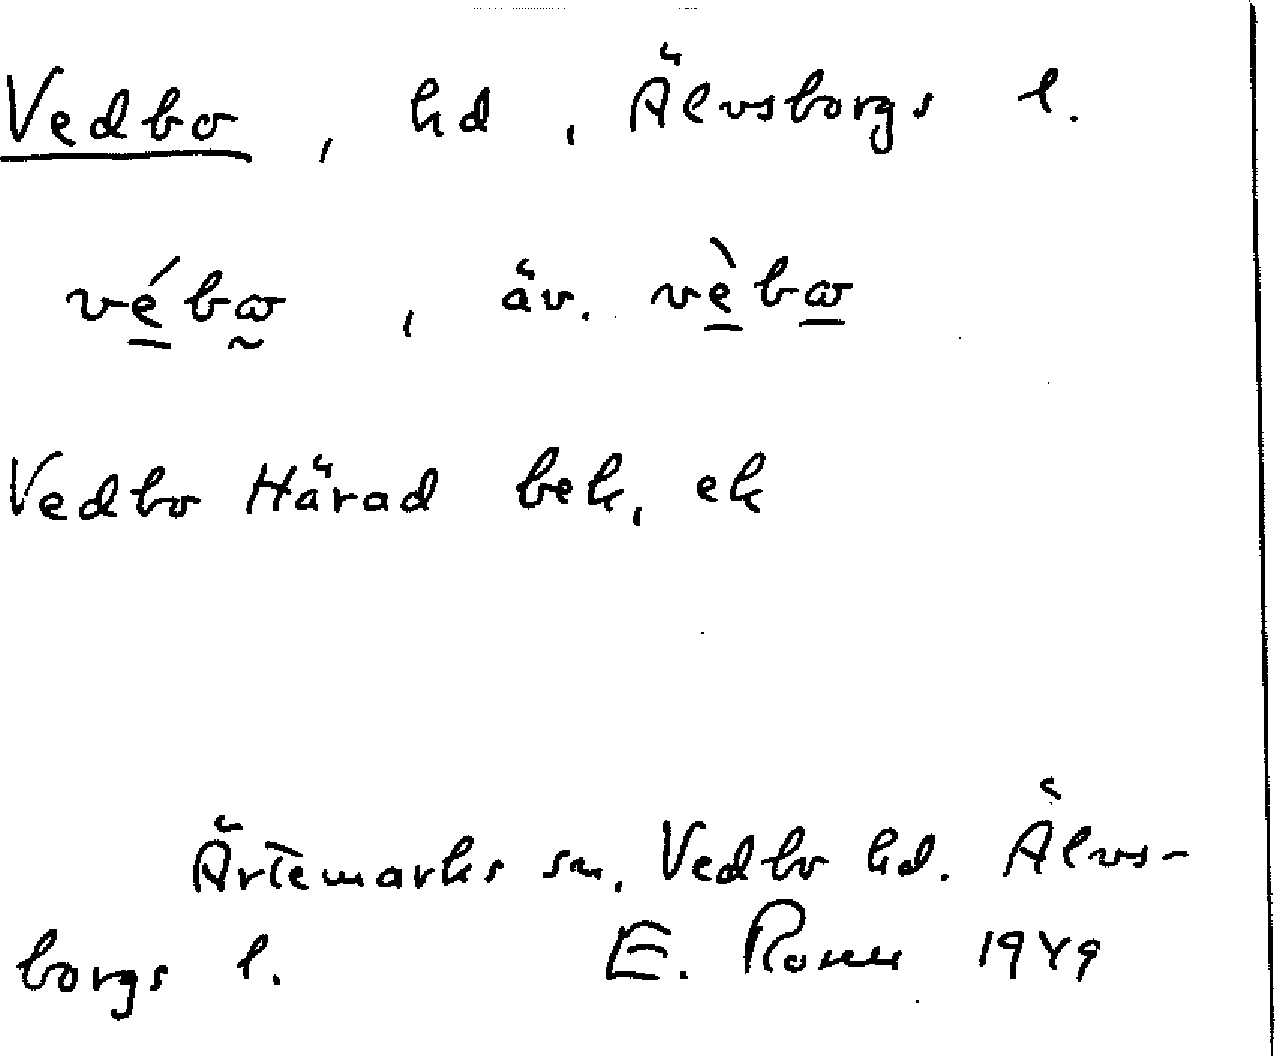 Vedbo, hd, Älvsborgs l.
vé̱bω̰, äv. vè̱bω̱
Vedbo Härad bek, ek
Ärtemarks sn. Vedbo hd. Älvs-
borgs l. E. 1949